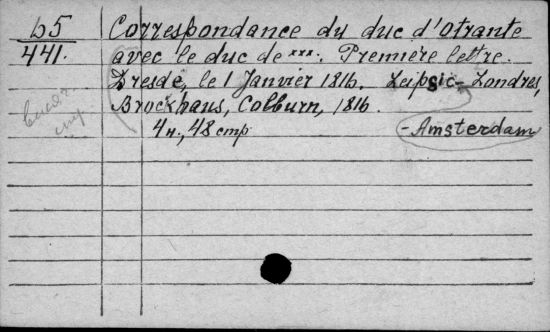 b5
441.
Correspondance du duc d'Otrante
avec le duc de xxx. Première lettre.
Dresde, le 1 Janvier 1816. Leipsic-Londres,
Brockhaus, Colburn, 1816.
4н., 48 стр
-Amsterdam